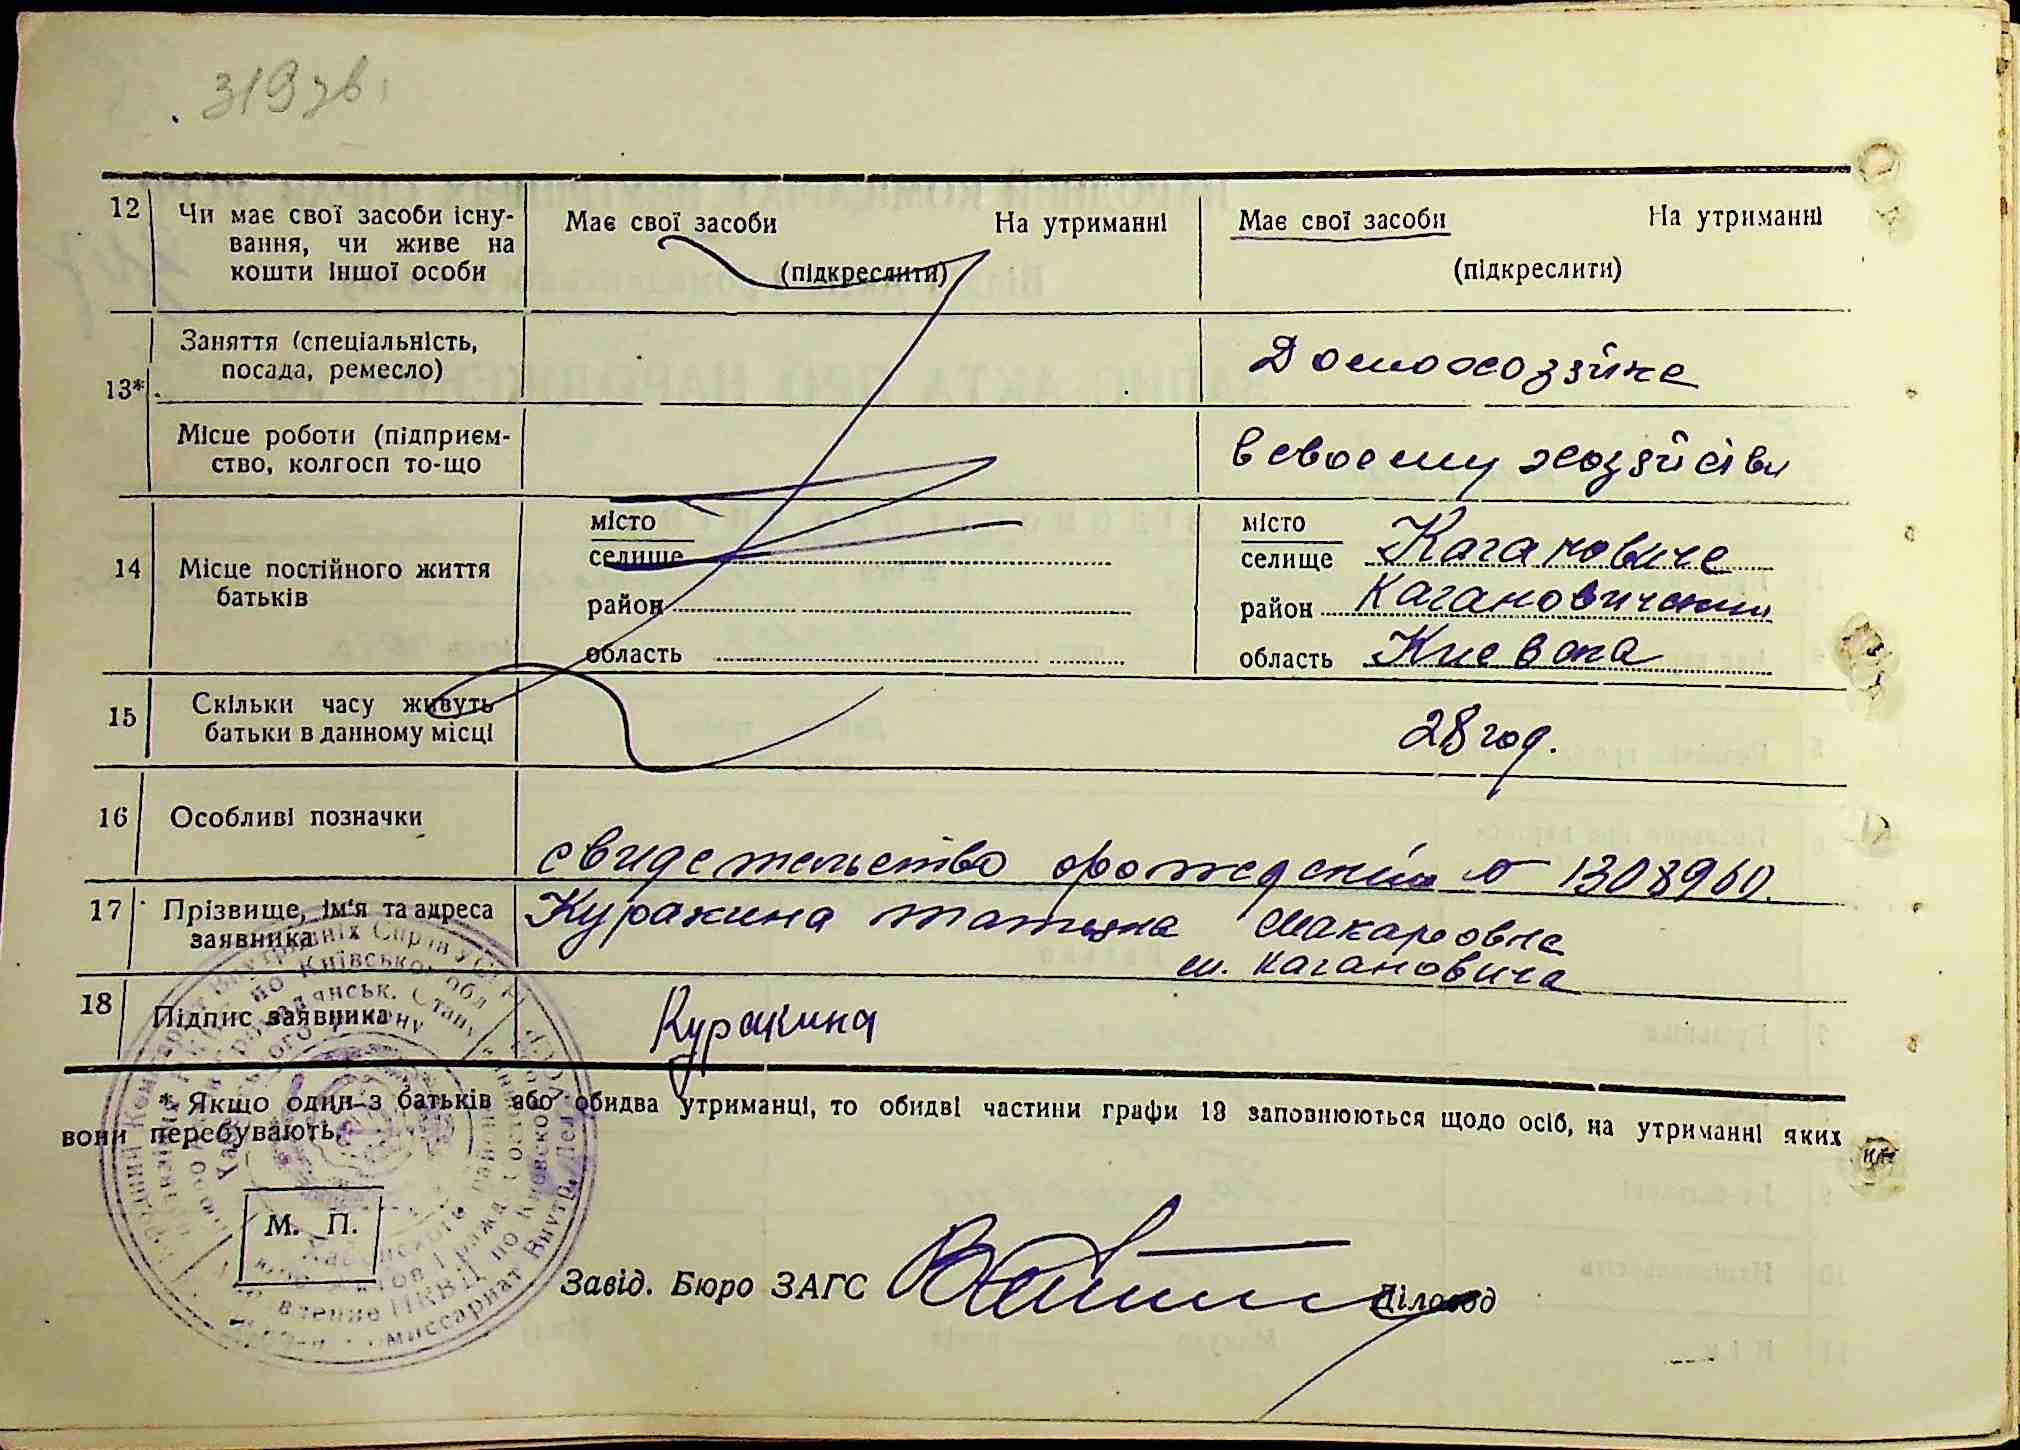 319 зв.
12 Чи має свої засоби існу- Має свої засоби На утриманні Має свої засоби На утриманні
вання, чи живе на (підкреслити) (підкреслити)
кошти іншої особи
13* Заняття (спеціальність, Домохозяйка
посада, ремесло)
Місце роботи (підприєм- в своему хозяйстви
ство, колгосп то-що
14 Місце постійного життя місто місто
батьків селище селище Кагановиче
район район Кагановичский
область область Киевска
15 Скільки часу живуть 28 год.
батьки в данному місці
16 Особливі позначки
свидетельство о рождении № 1308960.
17 Прізвище, ім'я та адреса Куракина Татьяна Макаровна
заявника м. Кагановича
18 Підпис заявника Куракина
* Якщо один з батьків або обидва утриманці, то обидві частини графи 13 заповнюються щодо осіб, на утриманні яких
вони перебувають.
М. П.
Завід. Бюро ЗАГС Діловод